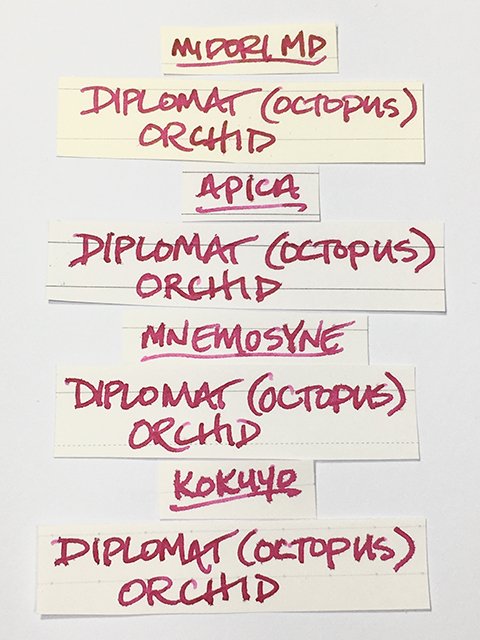 MIDORI MD
DIPLOMAT (OCTOPUS)
ORCHID
APICA
DIPLOMAT (OCTOPUS)
ORCHID
MNEMOSYNE
DIPLOMAT (OCTOPUS)
ORCHID
KOKUYO
DIPLOMAT (OCTOPUS)
ORCHID